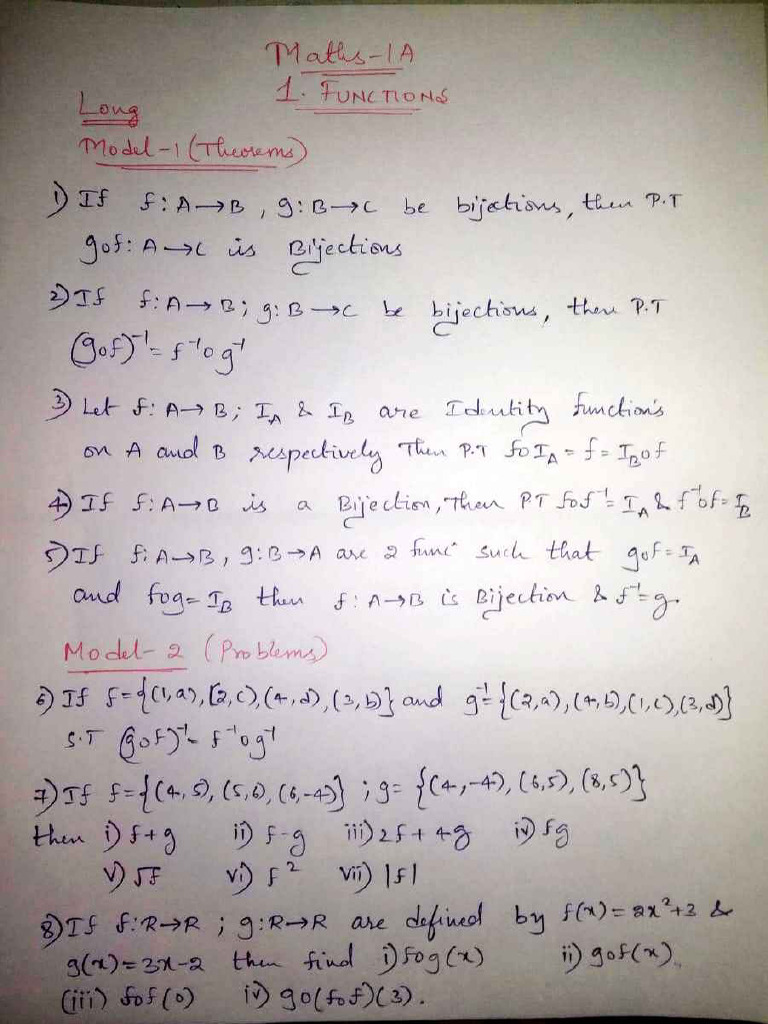 Maths-1A
1. FUNCTIONS
Long
Model-1 (Theorems)
1) If f: A→B, g: B→C be bijections, then P.T
gof: A→C is Bijections
2) If f: A→B; g: B→C be bijections, then P.T
(gof)⁻¹ = f⁻¹og⁻¹
3) Let f: A→B; I_A & I_B are Identity functions
on A and B respectively Then P.T foI_A = f = I_Bof
4) If f: A→B is a Bijection, Then PT fof⁻¹ = I_A & f⁻¹of = I_B
5) If f: A→B, g: B→A are 2 funcⁿ such that gof = I_A
and fog = I_B then f: A→B is Bijection & f⁻¹ = g.
Model-2 (Problems)
6) If f = {(1,a), (2,c), (4,d), (3,b)} and g⁻¹ = {(2,a), (4,b), (1,c), (3,d)}
S.T (gof)⁻¹ = f⁻¹og⁻¹
7) If f = {(4,5), (5,6), (6,-4)} ; g = {(4,-4), (6,5), (8,5)}
then i) f+g ii) f-g iii) 2f+4g iv) fg
v) √f vi) f² vii) |f|
8) If f: R→R ; g: R→R are defined by f(x) = 2x²+3 &
g(x) = 3x-2 then find i) fog(x) ii) gof(x),
(iii) fof(0) iv) go(fof)(3).